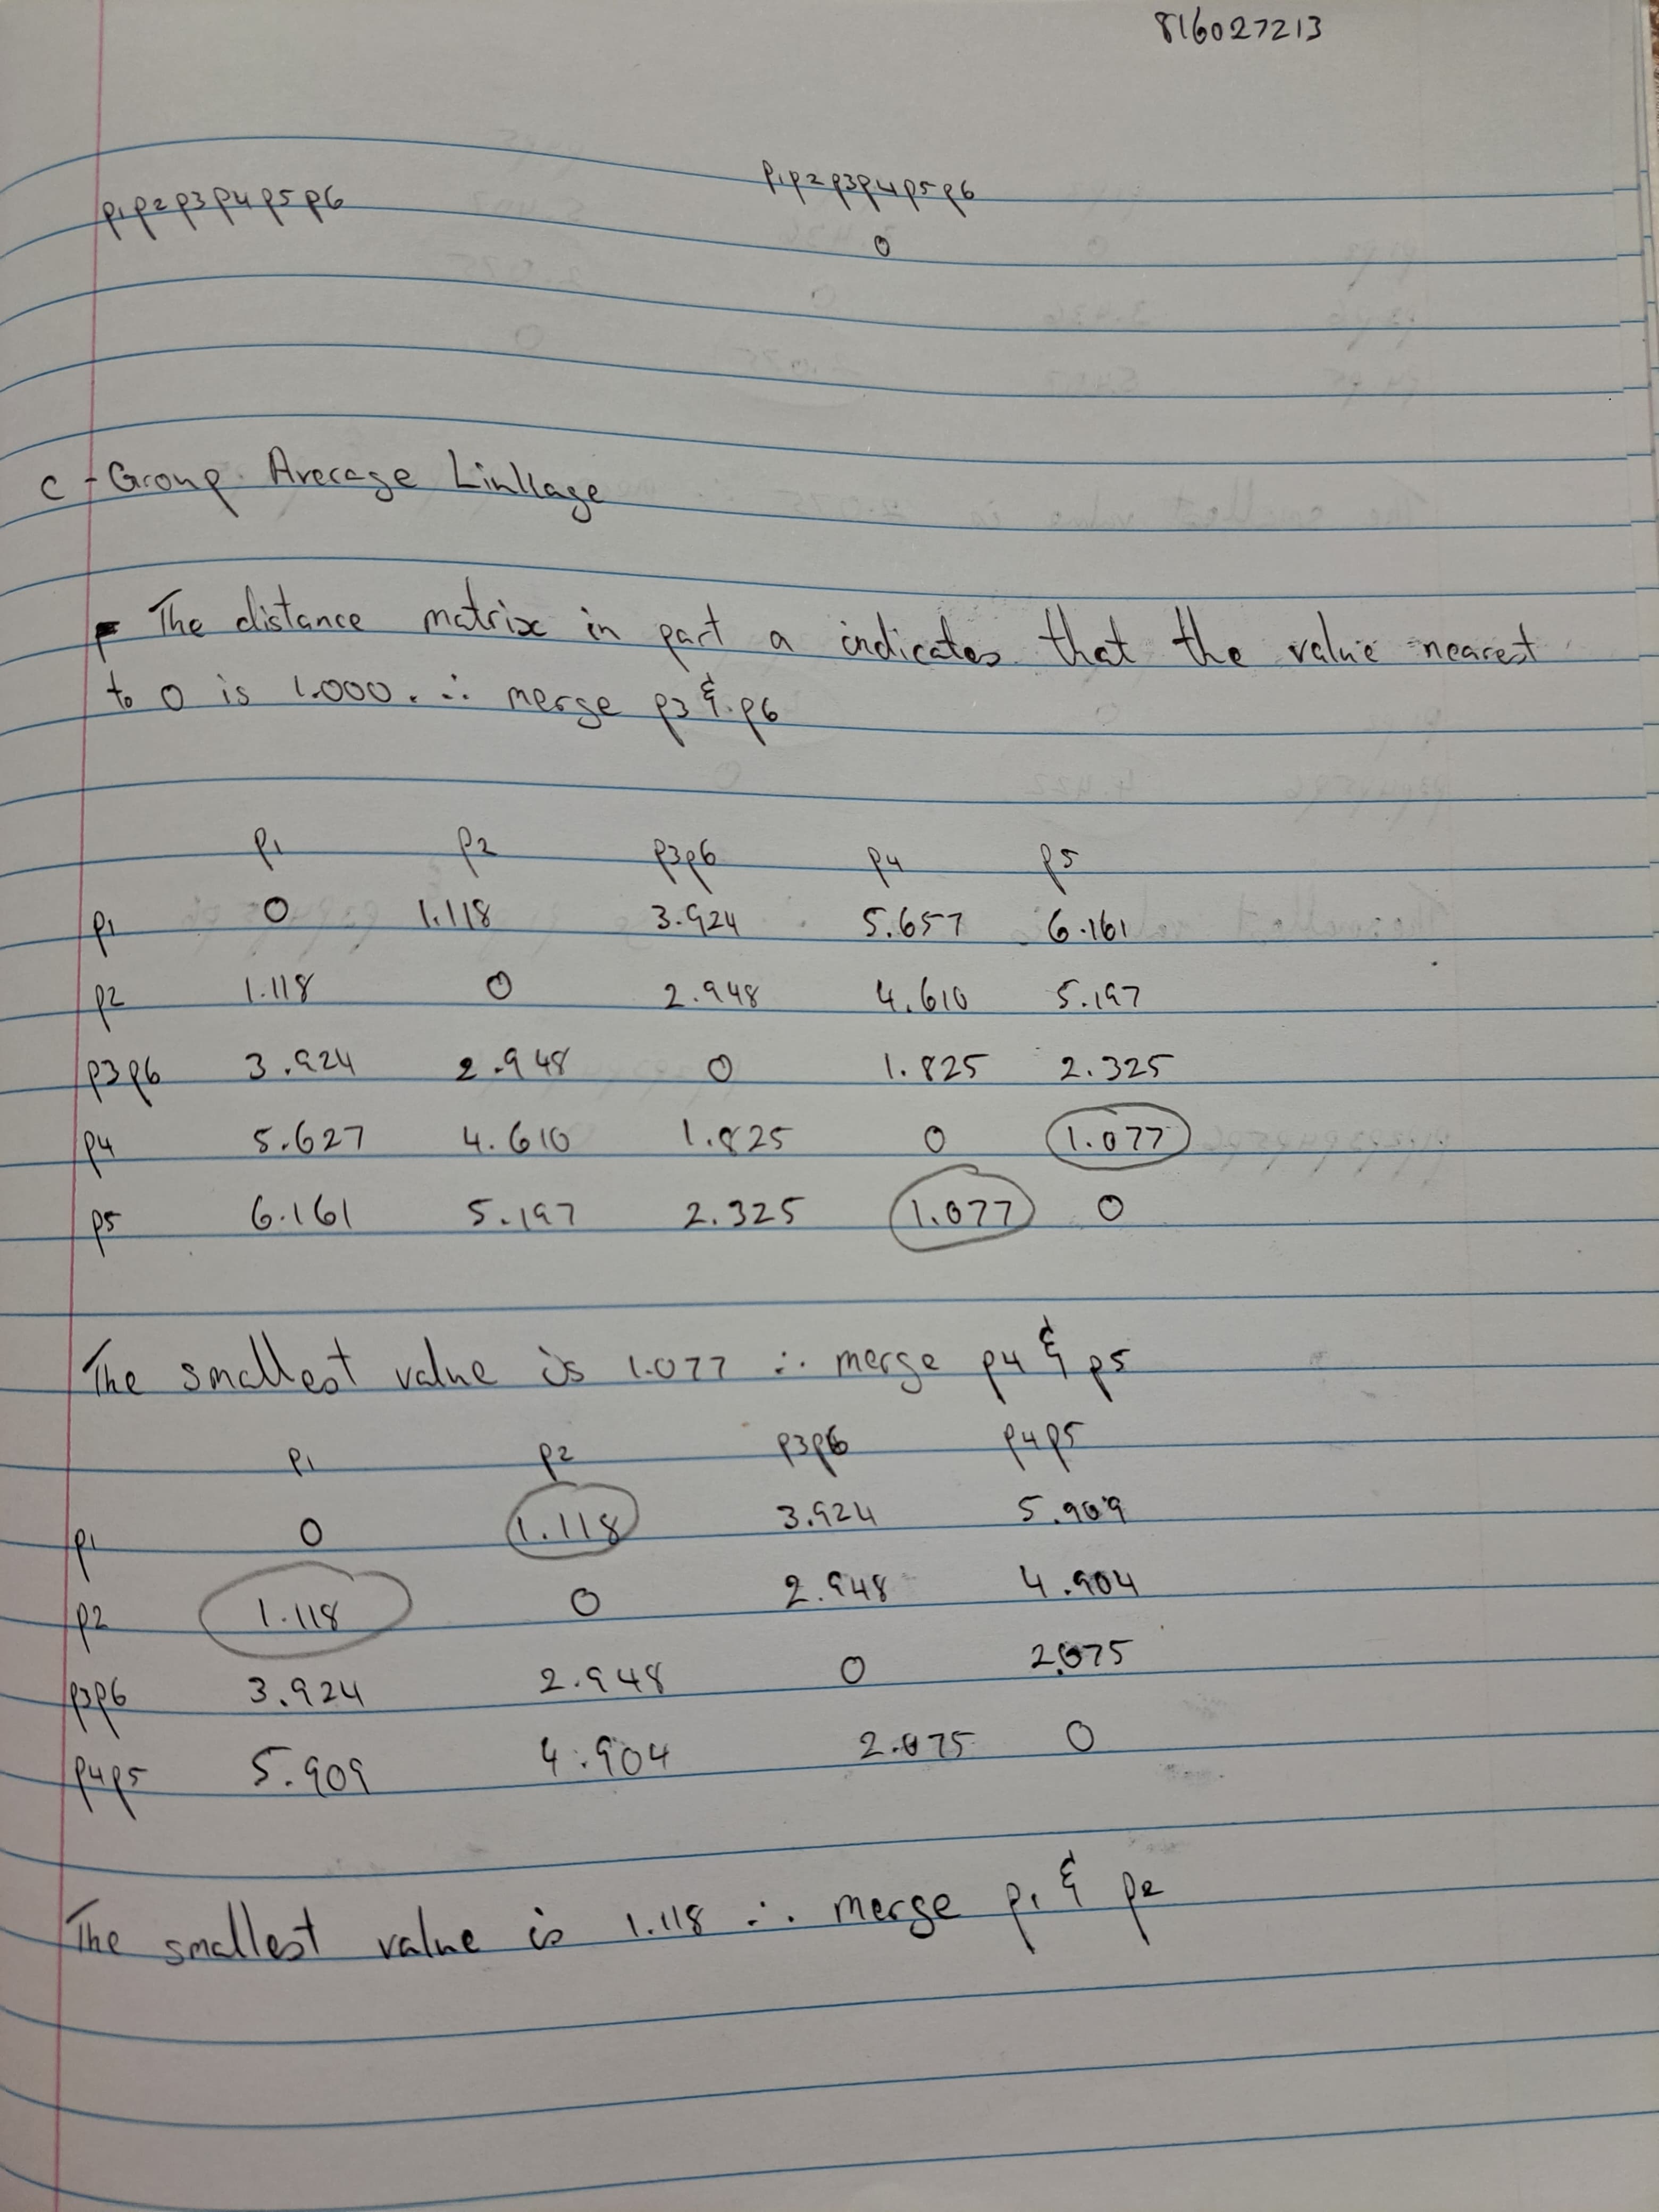 816027213
p1p2p3p4p5p6
p1p2p3p4p5p6
0
c - Group Average Linkage
The distance matrix in part a indicates that the value nearest
to 0 is 1.000. ∴ merge p3 & p6
p1 p2 p3p6 p4 p5
p1 0 1.118 3.924 5.657 6.161
p2 1.118 0 2.948 4.610 5.197
p3p6 3.924 2.948 0 1.825 2.325
p4 5.627 4.610 1.825 0 1.077
p5 6.161 5.197 2.325 1.077 0
The smallest value is 1.077 ∴ merge p4 & p5
p1 p2 p3p6 p4p5
p1 0 1.118 3.924 5.909
p2 1.118 0 2.948 4.904
p3p6 3.924 2.948 0 2.075
p4p5 5.909 4.904 2.075 0
The smallest value is 1.118 ∴ merge p1 & p2